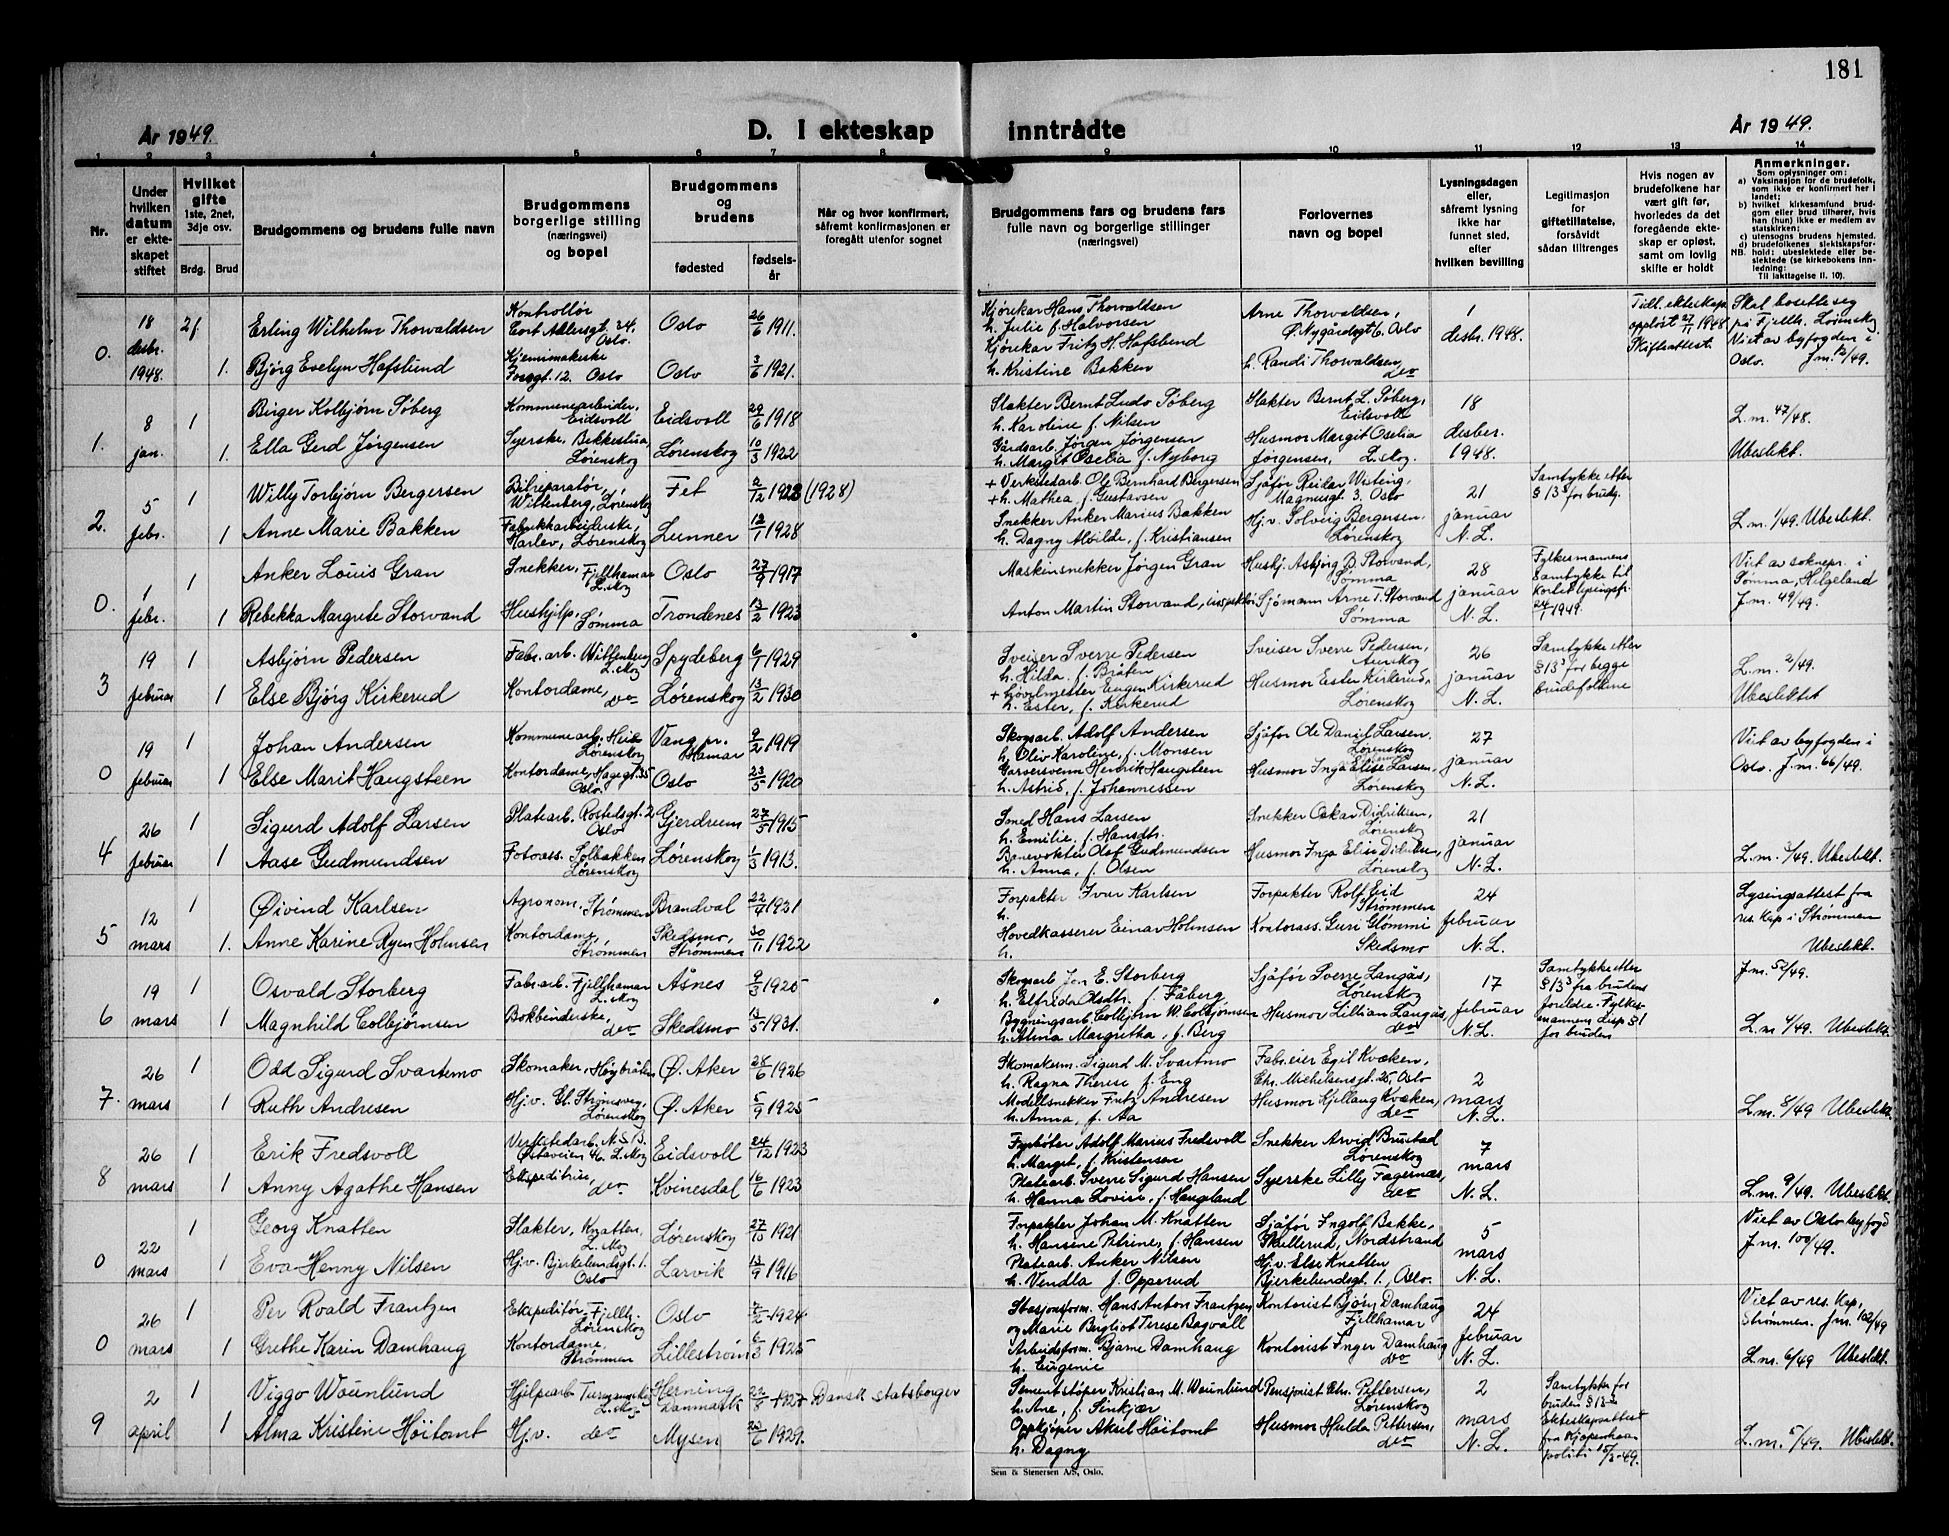 181
År 1949.
D. I ekteskap inntrådte
År 1949.
1 2 3 4 5 6 7 8 9 10 11 12 13 14
Nr.
Under hvilken datum er ekteskapet stiftet
Hvilket gifte
1ste, 2net, 3dje osv.
Brdg. Brud
Brudgommens og brudens fulle navn
Brudgommens borgerlige stilling (næringsvei) og bopel
Brudgommens og brudens
fødested
fødselsår
Når og hvor konfirmert, såfremt konfirmasjonen er foregått utenfor sognet
Brudgommens fars og brudens fars fulle navn og borgerlige stillinger (næringsvei)
Forlovernes navn og bopel
Lysningsdagen eller, såfremt lysning ikke har funnet sted, efter hvilken bevilling
Legitimasjon for giftetillatelse, forsåvidt sådan tiltrenges
Hvis nogen av brudefolkene har vært gift før, hvorledes da det foregående ekteskap er opløst, samt om lovlig skifte er holdt
Anmerkninger.
Som oplysninger om:
a) Vaksinasjon for de brudefolk, som ikke er konfirmert her i landet;
b) hvilket kirkesamfund brudgom eller brud tilhører, hvis han (hun) ikke er medlem av statskirken;
c) utensogns brudens hjemsted.
d) brudefolkenes slektskapsforhold: ubeslektede eller beslektede (se kirkebokens innledning:
NB. Til iakttagelse II. 10).
0. 18 desbr. 1948. 2f 1.
Erling Wilhelm Thorvaldsen
Kontrollør Cort Adlersgt. 24. Oslo.
Oslo 26/6 1911.
Kjørekar Hans Thorvaldsen
h. Julie f. Halvorsen
Arne Thorvaldsen, Ø. Nygårdsgt 6. Oslo
1 desbr. 1948.
Tidl. ekteskap oppløst 27/1 1948 Skifteattest.
Skal bosette seg på Fjellh. Lørenskog Viet av byfogden i Oslo. J.m. 12/49.
Bjørg Evelyn Hafslund
Oslo
Oslo 3/6 1921.
Kjørekar Fritz H. Hafslund
h. Kristine Bakken
h. Randi Thorvaldsen do
1. 8 jan. 1 1.
Birger Kolbjørn Søberg
Kommunearbeider, Eidsvoll
Eidsvoll 29/6 1918
Slakter Bernt Ludv Søberg
h. Karoline f. Nilsen
Slakter Bernt L. Søberg, Eidsvoll
18 desber. 1948.
L.m. 47/48.
Ella Gerd Jørgensen
Syerske, Bekkestua, Lørenskog
Lørenskog 10/3 1922
Gårdsarb. Jørgen Jørgensen
h. Margit Oselia f. Nyborg
Husmor Margit Oselia Jørgensen, L.skog.
Ubeslekt.
2. 5 febr. 1 1
Willy Torbjørn Bergersen
Bilreparatør, Wittenberg, Lørenskog
Fet 2/12 1928 (1928)
+ Verkstedarb. Ole Bernhard Bergersen
+ h. Mathea f. Gustavsen
Sjåfør Reidar Wisting, Magnusgt 3. Oslo
21 januar N.L.
Samtykke etter § 13 for brudg.
Anne Marie Bakken
Fabrikkarbeiderske, Harlev, Lørenskog
Lunner 12/1 1928
Snekker Anker Marius Bakken
h. Dagny Alvilde, f. Kristiansen
Hj.v. Solveig Bergersen, Lørenskog
L.m. 1/49. Ubeslekt.
0. 1 febr. 1 1
Anker Louis Gran
Snekker, Fjellhamar L.skog
Oslo 27/9 1917
Maskinsnekker Jørgen Gran
Husbj. Asbjørg B. Storvand, Sømma
28 januar N.L.
Fylkesmannens samtykke til kortet lysingsfr. 24/1 1949.
Viet av soknepr. i Sømma, Helgeland J.m. 49/49.
Rebekka Margrete Storvand
Hushjelp, Sømma
Trondenes 13/2 1923
Anton Martin Storvand, inspektør
Sjømann Arne T. Storvand Sømma
3 19 februar 1 1
Asbjørn Pedersen
Fabr.arb. Wittenberg L.skog
Spydeberg 6/1 1929
Sveiser Sverre Pedersen
h. Hilda f. Bråten
Sveiser Sverre Pedersen, Aurskog
26 januar N.L.
Samtykke etter § 13 for begge brudefolkene
L.m. 2/49.
Else Bjørg Kirkerud
Kontordame, do
Lørenskog 13/2 1930
+ Høvelmester Eugen Kirkerud
h. Ester, f. Kirkerud
Husmor Ester Kirkerud, Lørenskog
Ubeslektet
0 19 februar 1 1
Johan Andersen
Kommunearb. Lørenskog
Vang pr. Hamar 9/2 1919
Skogsarb. Adolf Andersen
h. Oliv Karoline, f. Monsen
Sjåfør Ole Daniel Larsen Lørenskog
27 januar N.L.
Viet av byfogden i Oslo. J.m. 66/49.
Else Marit Haugsteen
Kontordame, Hagegt. 35 Oslo.
Oslo 23/5 1920
Garversvenn Henrik Haugsteen
h. Astrid, f. Johannessen
Husmor Inga Elise Larsen, Lørenskog
4 26 februar 1 1
Sigurd Adolf Larsen
Platearb. Oslo
Gjerdrum 27/5 1915
Smed Hans Larsen
h. Emilie, f. Hansdtr.
Snekker Oskar Didriksen, Lørenskog
21 januar N.L.
Aase Gudmundsen
Fotoass. Solbakken Lørenskog
Lørenskog 1/3 1913.
Banevokter Olaf Gudmundsen
h. Anna, f. Olsen
Husmor Inga Elise Didriksen, Lørenskog
L.m. 3/49. Ubeslekt.
5 12 mars 1 1.
Øivind Karlsen
Agronom. Strømmen
Brandval 22/4 1921
Forpakter Ivar Karlsen
h.
Forpakter Rolf Eid Strømmen
24 februar N.L.
Lysingsattest fra res. kap i Strømmen
Anne Karine Ryen Holmsen
Kontordame, Strømmen
Skedsmo, Strømmen 30/11 1922
Hovedkasserer Einar Holmsen
h.
Kontorass. Guri Glømmi Skedsmo
Ubeslekt.
6 19 mars 1 1
Osvald Storberg
Fabr.arb. Fjellhamar L.skog
Åsnes 9/3 1925
Skogsarb Jon E. Storberg
h. Elfrida Olsdtr. f. Fåberg
Sjåfør Sverre Langås, Lørenskog
17 februar N.L.
Samtykke etter § 13 fra brudens foreldre. Fylkesmannens disp § 1 for bruden
J.m. 52/49.
Magnhild Colbjørnsen
Bokbinderske, do
Skedsmo 13/5 1931.
Bygningsarb. Colbjørn W. Colbjørnsen
h. Alma Margritha, f. Berg
Husmor Lillian Langås, do
L.m. 4/49. Ubeslekt.
7. 26 mars 1 1
Odd Sigurd Svartemo
Skomaker, Høybråten
Ø. Aker 28/6 1926
Skomakerm. Sigurd M. Svartmo
h. Ragna Therese f. Eng
Fabr.eier Egil Kvæken, Chr. Michelsensgt. 25, Oslo
2 mars N.L.
Ruth Andresen
Hj.v. Gl. Strømsveg, Lørenskog
Ø. Aker 5/9 1925
Modellsnekker Fritz Andresen
h. Anna, f. Aa
Husmor Kjellaug Kvæken, do
L.m. 8/49 Ubeslekt.
8 26 mars 1 1
Erik Fredsvoll
Verkstedarb. N.S.B. Østaveien 46. L.skog
Eidsvoll 24/12 1923
Fyrbøter Adolf Marius Fredsvoll
h. Marget, f. Kristensen
Snekker Arvid Brustad Lørenskog
7 mars N.L.
Anny Agathe Hansen
Ekspeditrise, do
Kvinesdal 16/6 1923
Platearb. Sverre Sigurd Hansen
h. Hanna Lovise, f. Haugland
Syerske Lilly Fagernæs, do
L.m. 9/49. Ubeslekt.
0 22 mars 1 1
Georg Knatten
Slakter, Knatten, L.skog
Lørenskog 27/10 1921
Forpakter Johan M. Knatten
h. Hansine Petrine, f. Hansen
Sjåfør Ingolf Bakke, Skullerud, Nordstrand
5 mars N.L.
Viet av Oslo byfogd J.m. 100/49.
Eva Henny Nilsen
Hj.v. Bjerkelundsgt. 1. Oslo
Larvik 13/9 1916
Platearb. Anker Nilsen
h. Vendla f. Opperud
Hj.v. Else Knatten Bjerkelundsgt 1. Oslo.
0 26 mars 1 1
Per Roald Frantzen
Ekspeditør, Fjellh. Lørenskog
Oslo 2/2 1924
Stasjonsform. Hans Anton Frantzen
og Marie Bergliot Terese Bagvall
Kontorist Bjørn Damhaug Fjellhamar
24 februar N.L.
Viet av res. kap. Strømmen. J.m. 102/49
Grethe Karin Damhaug
Kontordame, Strømmen
Lillestrøm 6/3 1925
Arbeidsform. Bjarne Damhaug
h. Eugenie
Kontorist Inger Damhaug do
L.m. 6/49 Ubeslekt.
9 2 april 1 1
Viggo Wounlund
Hjelpearb. L.skog
Herning Danmark 22/5 1927 Dansk statsborger
Sementstøper Kristian M. Wounlund
h. Ane, f. Sinkjær
Pensjonist Chr. Pettersen, Lørenskog
2 mars N.L.
Samtykke for bruden § 13 Ekteskapsattest fra Kjøpenhavn politi 15/3-49.
Alma Kristine Høitomt
Hj.v. do
Mysen 23/6 1929.
Oppkjøper Aksel Høitomt
h. Dagny
Husmor Hulda Pettersen, do
L.m. 5/49. Ubeslekt.
Sem & Stenersen A/S, Oslo.